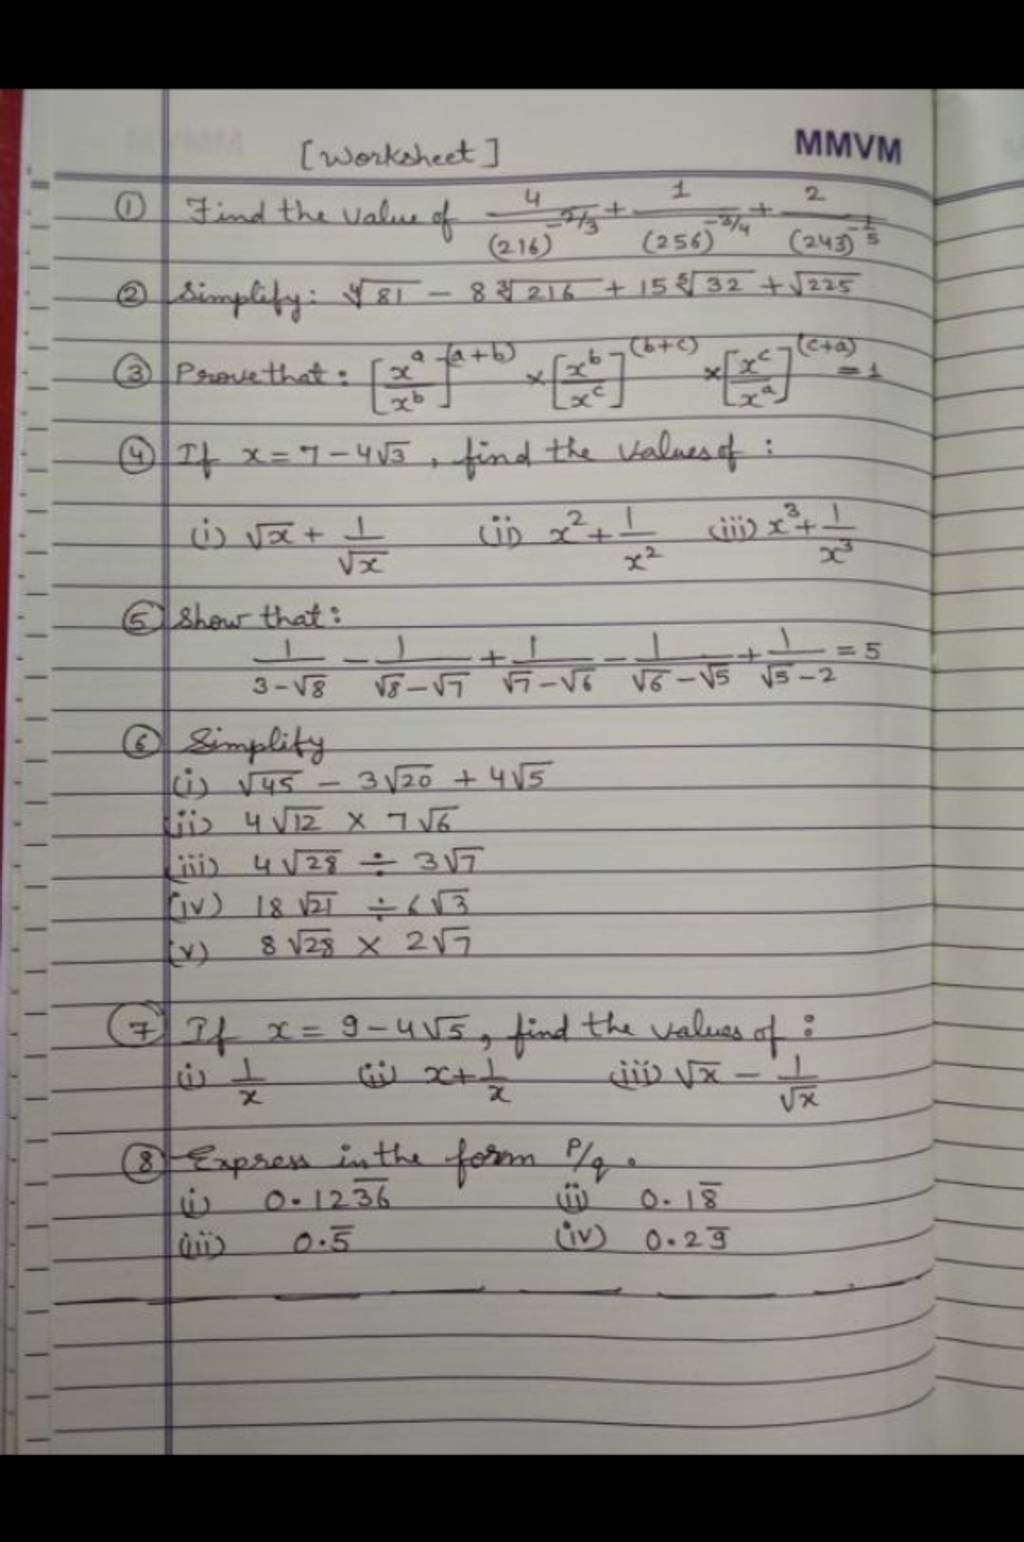 [Worksheet] MMVM
① Find the value of 4/(216)^(-2/3) + 1/(256)^(-3/4) + 2/(243)^(-1/5)
② Simplify: ∜81 - 8∛216 + 15 ⁵√32 + √225
③ Prove that: [x^a/x^b]^(a+b) × [x^b/x^c]^(b+c) × [x^c/x^a]^(c+a) = 1
④ If x = 7 - 4√3, find the values of :
(i) √x + 1/√x (ii) x² + 1/x² (iii) x³ + 1/x³
⑤ Show that:
1/(3-√8) - 1/(√8-√7) + 1/(√7-√6) - 1/(√6-√5) + 1/(√5-2) = 5
⑥ Simplify
(i) √45 - 3√20 + 4√5
(ii) 4√12 × 7√6
(iii) 4√28 ÷ 3√7
(iv) 18√21 ÷ 6√3
(v) 8√28 × 2√7
⑦ If x = 9 - 4√5, find the values of :
(i) 1/x (ii) x + 1/x (iii) √x - 1/√x
⑧ Express in the form P/q.
(i) 0.123̅6̅ (ii) 0.18̅
(iii) 0.5̅ (iv) 0.29̅